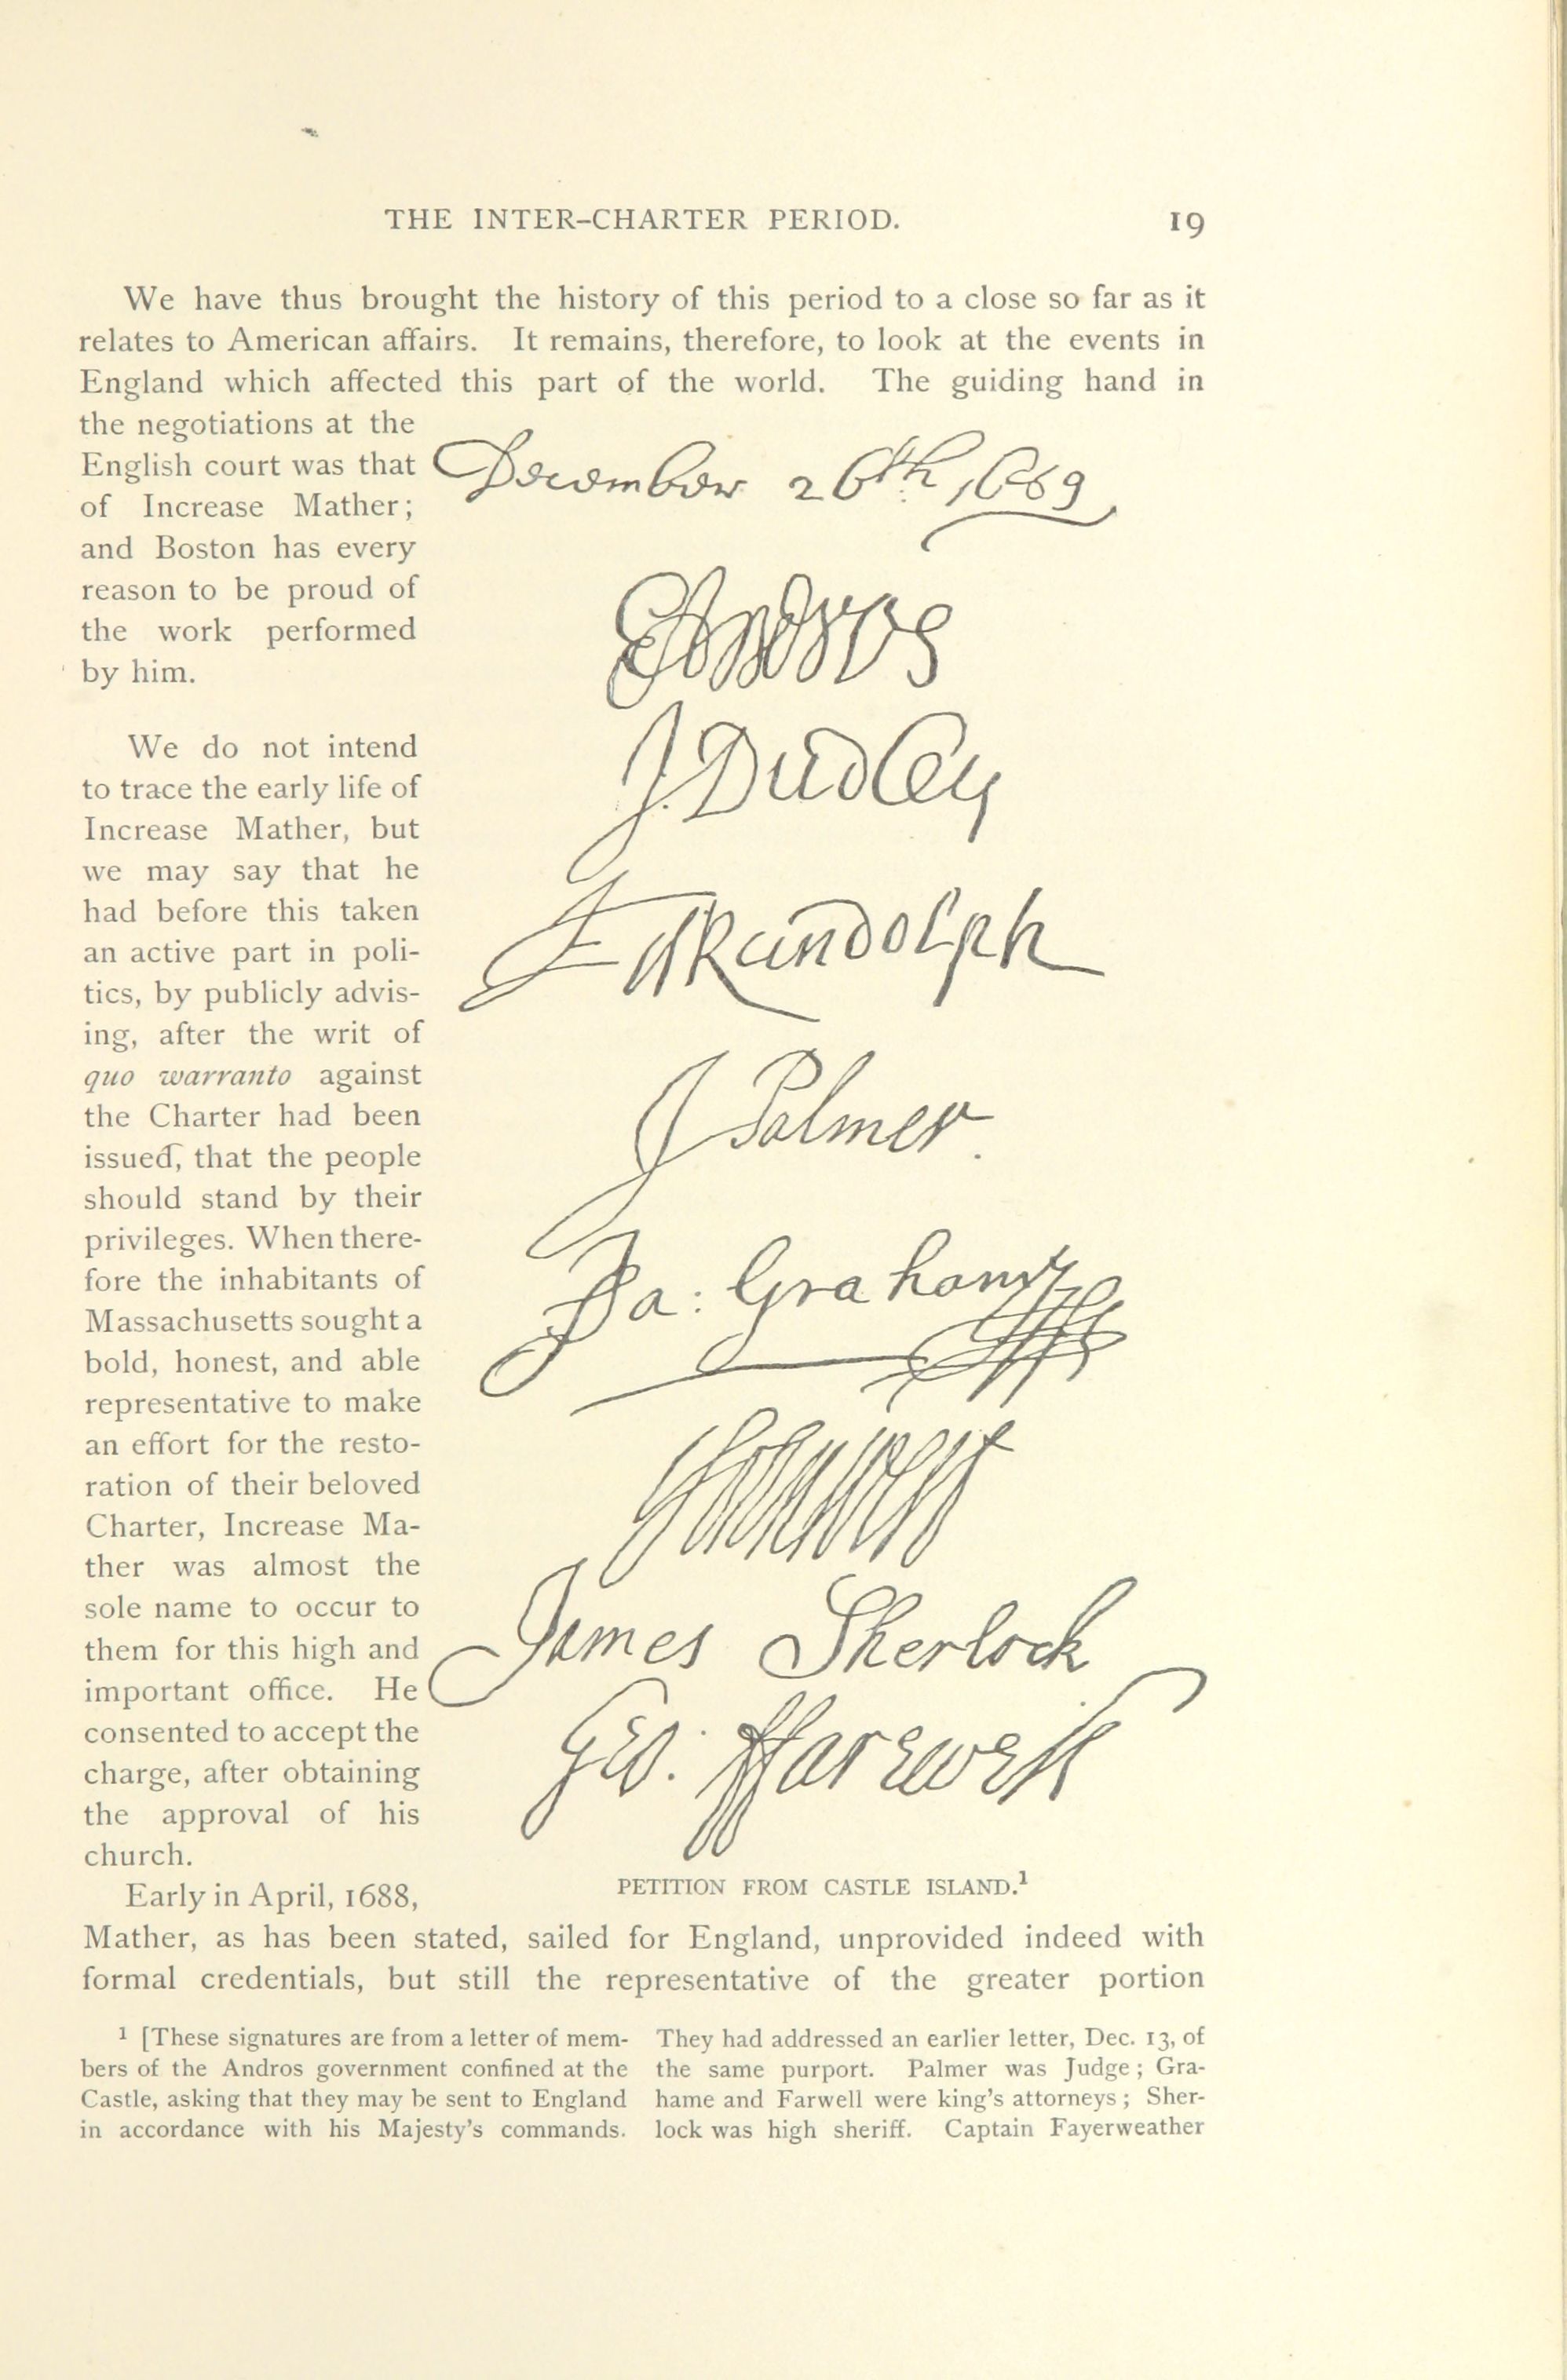 THE INTER-CHARTER PERIOD. 19
We have thus brought the history of this period to a close so far as it
relates to American affairs. It remains, therefore, to look at the events in
England which affected this part of the world. The guiding hand in
the negotiations at the
English court was that
of Increase Mather;
and Boston has every
reason to be proud of
the work performed
by him.
We do not intend
to trace the early life of
Increase Mather, but
we may say that he
had before this taken
an active part in poli-
tics, by publicly advis-
ing, after the writ of
quo warranto against
the Charter had been
issued, that the people
should stand by their
privileges. When there-
fore the inhabitants of
Massachusetts sought a
bold, honest, and able
representative to make
an effort for the resto-
ration of their beloved
Charter, Increase Ma-
ther was almost the
sole name to occur to
them for this high and
important office. He
consented to accept the
charge, after obtaining
the approval of his
church.
Early in April, 1688,
December 26th, 1689
E Andros
J. Dudley
Ed Randolph
J Palmer.
Ja: Graham
James Sherlock
Geo: ffarewell
PETITION FROM CASTLE ISLAND.¹
Mather, as has been stated, sailed for England, unprovided indeed with
formal credentials, but still the representative of the greater portion
¹ [These signatures are from a letter of mem-
bers of the Andros government confined at the
Castle, asking that they may be sent to England
in accordance with his Majesty's commands.
They had addressed an earlier letter, Dec. 13, of
the same purport. Palmer was Judge; Gra-
hame and Farwell were king's attorneys; Sher-
lock was high sheriff. Captain Fayerweather